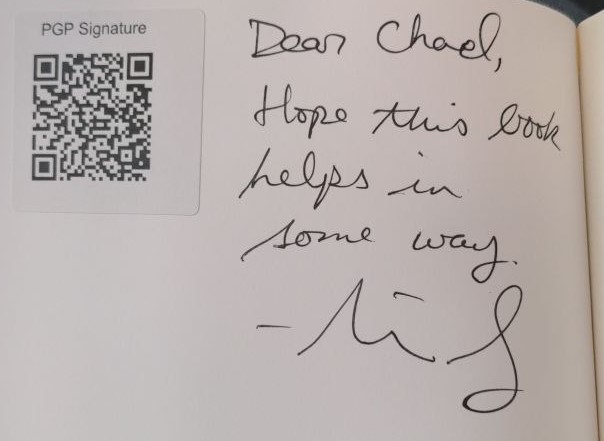 PGP Signature
Dear Chael,
Hope this book
helps in
some way.